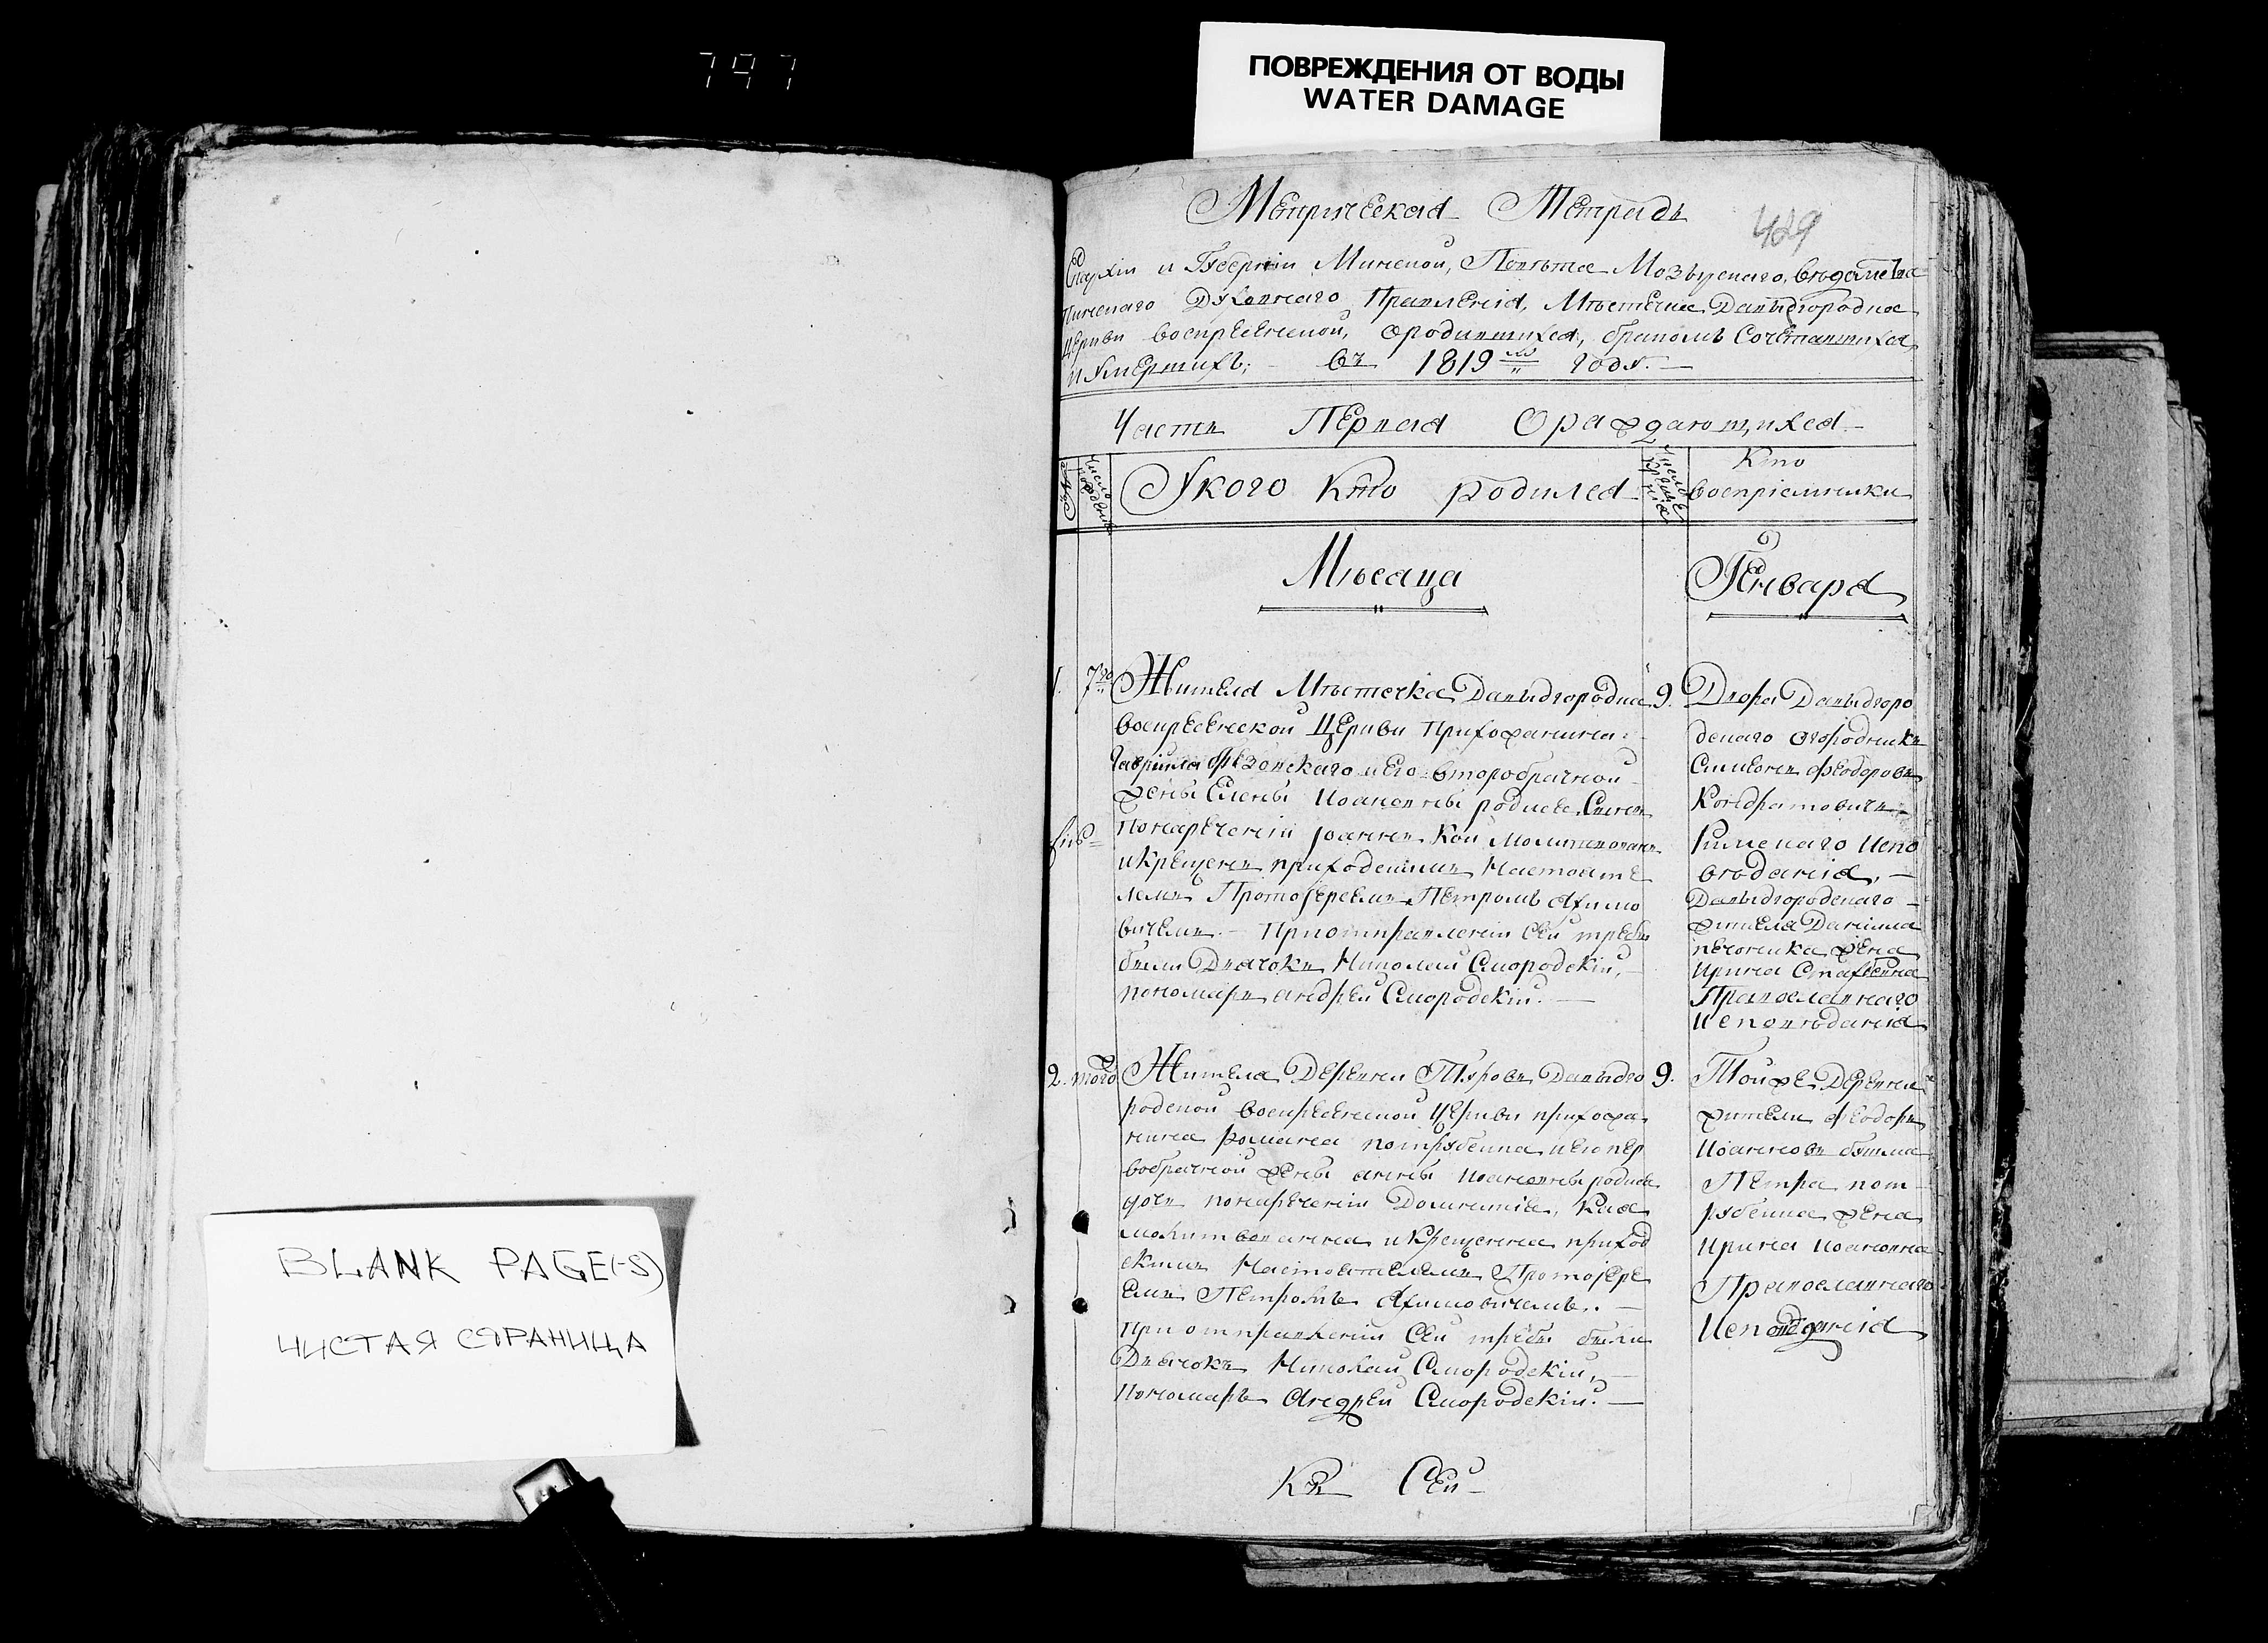 797
ПОВРЕЖДЕНИЯ ОТ ВОДЫ
WATER DAMAGE
Метрическая Тетрадь
429
Епархіи и Губерніи Минской, Повѣта Мозырскаго, вѣдомства
Пинскаго Духовнаго Правленія, Мѣстечка Давыдгородка
Церкви воскресенской, ородившихся, бракомъ Сочетавшихся
и умершихъ; въ 1819м году.
Часть Первая Ораждающихся
Число рожденія
У кого Кто родился
Число крещенія
Кто
воспріемники
Мѣсяца
Генваря
1. 7го Жителя Мѣстечка Давыдгородка 9.
воскресенской Церкви Прихожанина
Гавріила его второбрачной
жены Елены Иоановны родився Сынъ
Понареченіи Иоаннъ Кой Молитвованъ
икрещенъ приходскимъ Настояте
лемъ Протоіереемъ Петромъ
вичемъ. Приотправленіи Сей требы
были Дьячокъ Николай Смородскій,
пономарь андрей Смородскій.
Двора Давыдгоро
дскаго огородникъ
Симеонъ Феодоровъ
Кондратовичъ
Римскаго Испо
вѣданія,
Давыдгородскаго
жителя Даніила
печоника жена
Ирина
Православнаго
Исповѣданія
2. того Жителя Деревни Туровъ Давыдго 9.
родской воскресенской Церкви прихожа
нина романа потрубейка иего пер
вобрачной жены анны Иоановны родися
дочь понареченіи Домникія, Коя
молитвованна икрещенна приход
скимъ Настоятелемъ Протоіере
емъ Петромъ
При отправленіи Сей требы были
Дьячокъ Николай Смородскій,
Пономарь Андрей Смородскій.
Тойже Деревни
жители Феодоръ
Иоанновъ
Петра пот
рубейка жена
Ирина Иоановна
Православнаго
Исповѣданія
Къ Сей
BLANK PAGE(-S)
ЧИСТАЯ СТРАНИЦА